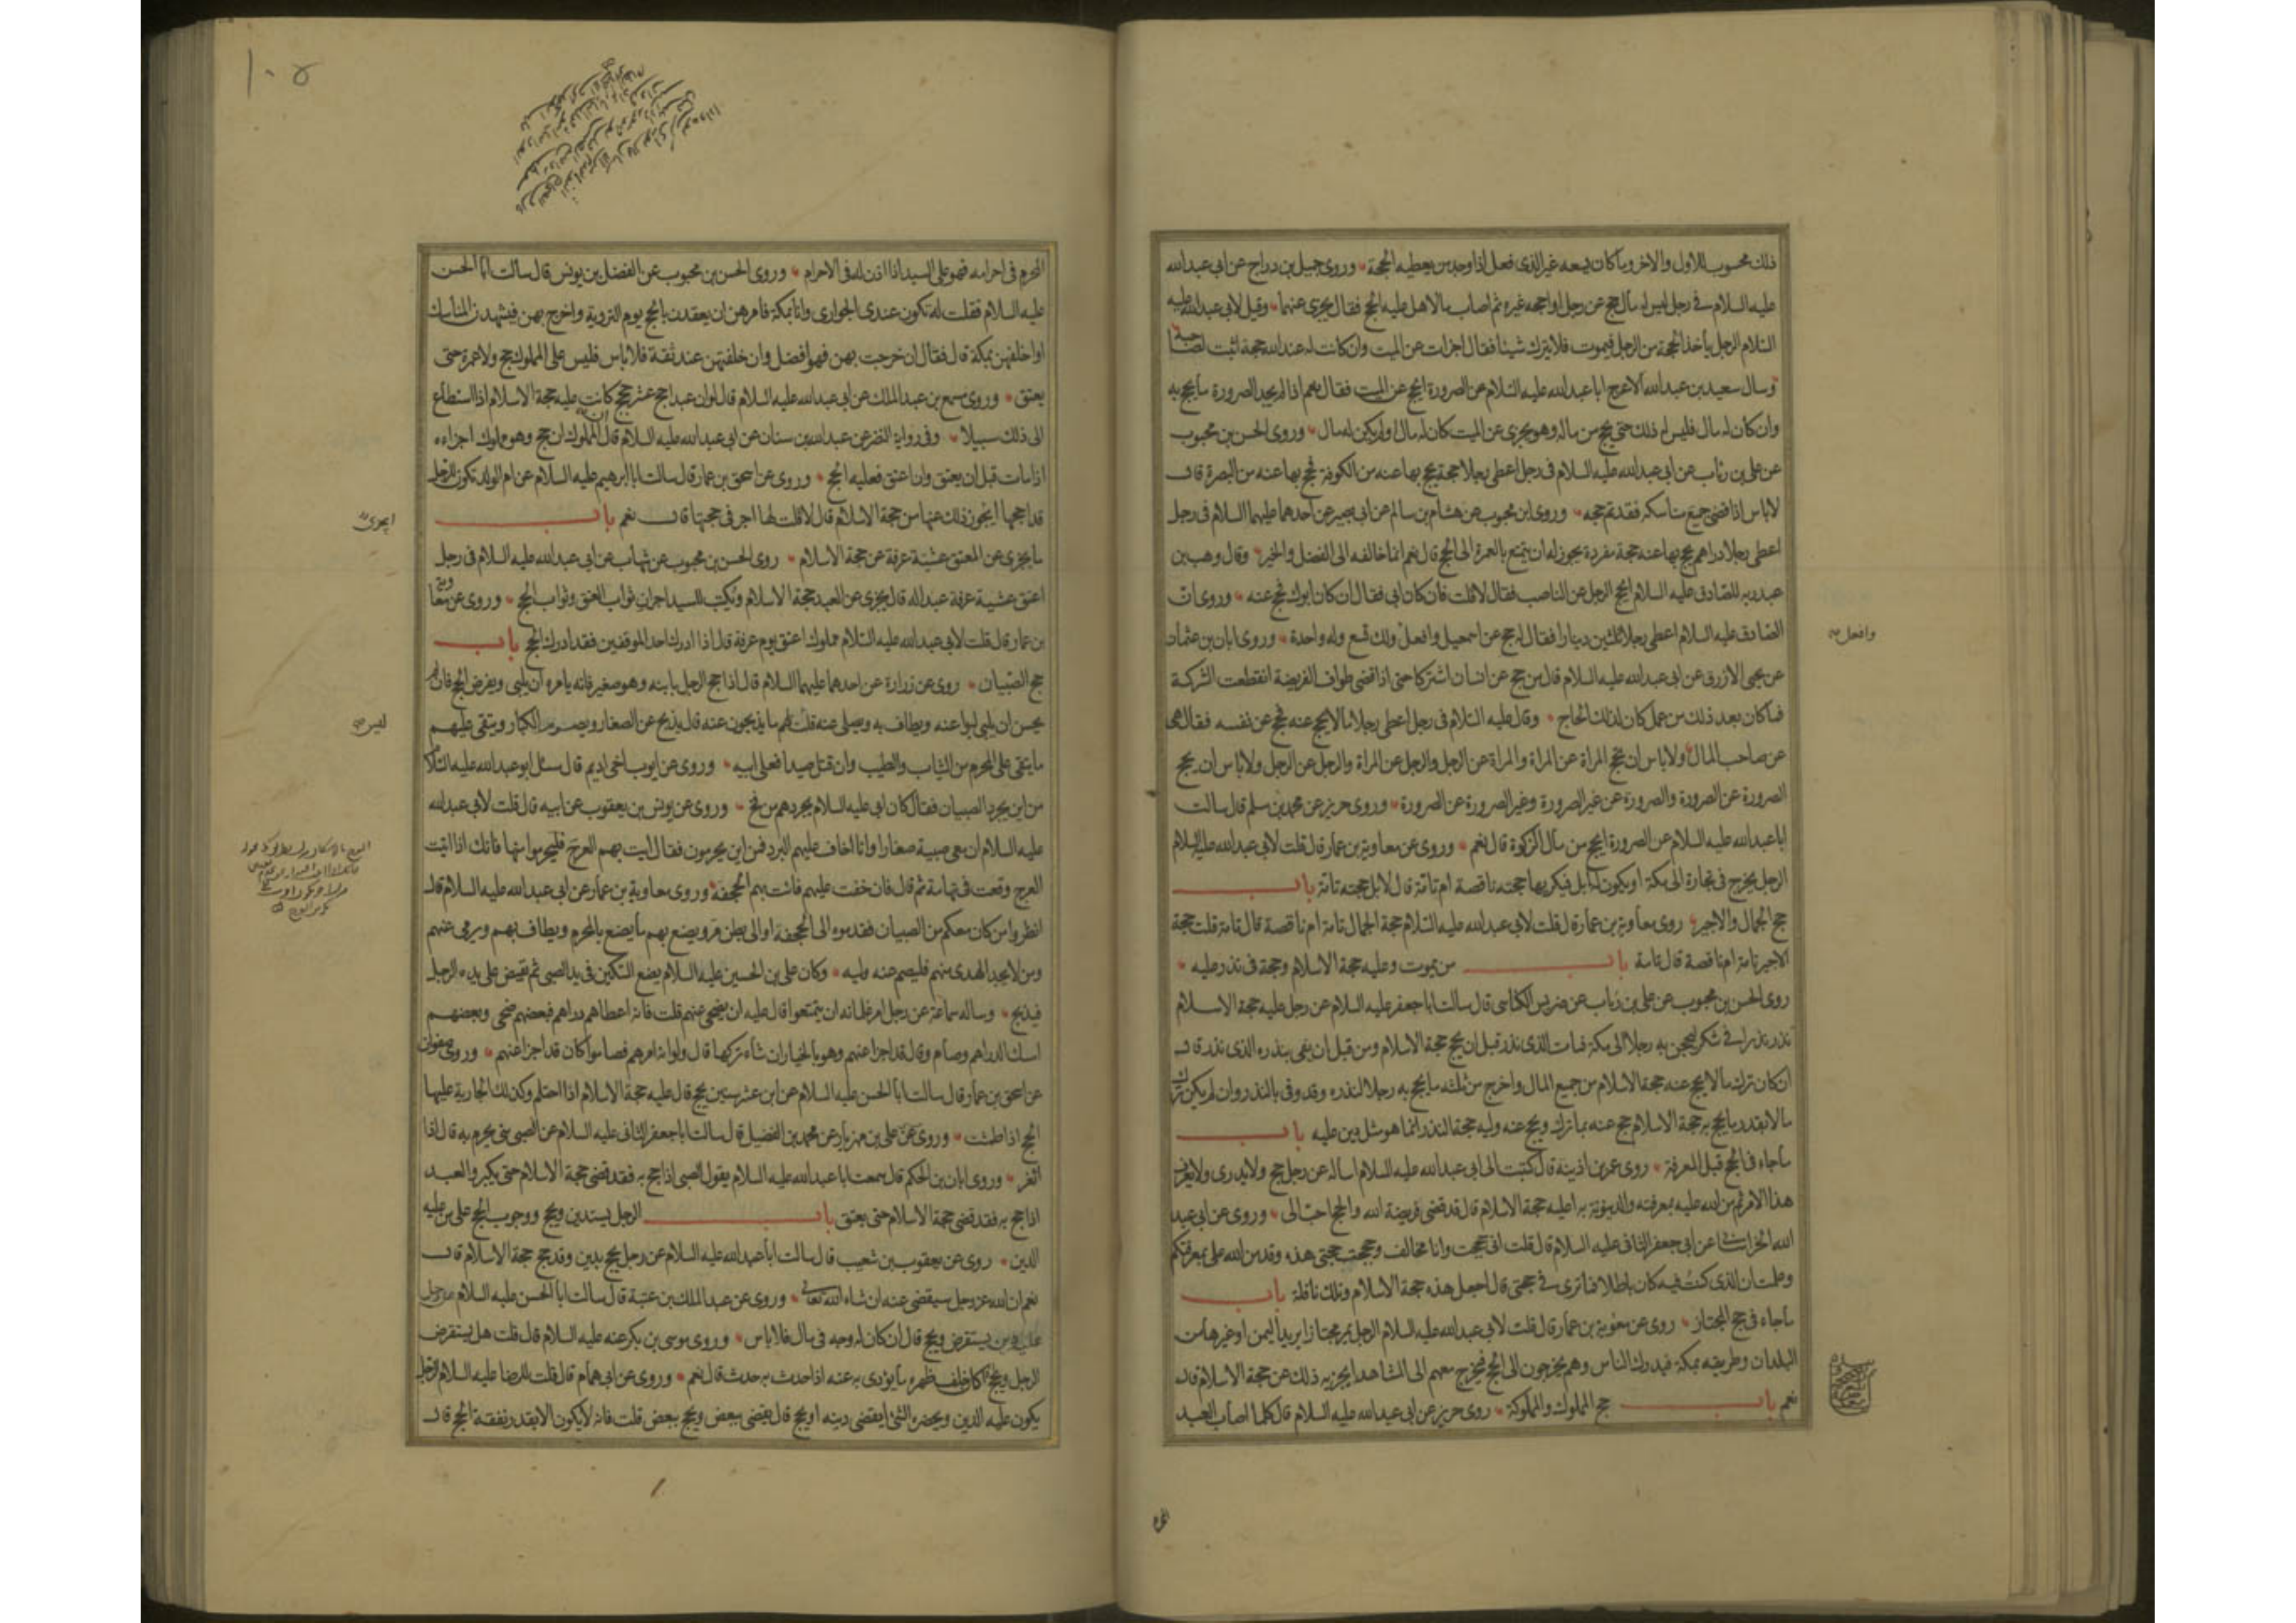 ذلك محسوب للاول والاخر وما كان يسعه غير الذى فعل اذا وجد من يعطيه الحجة وروى جميل بن دراج عن ابى عبدالله
عليه السلام فى رجل ليس له مال حج عن رجل او احجه غيره ثم اصاب مالا هل عليه الحج فقال يجزى عنهما وقيل لابى عبدالله عليه
السلام الرجل ياخذ الحجة من الرجل فيموت فلا يترك شيئا فقال اجزات عن الميت وان كانت له عند الله حجة اثبت لصاحبه
وسال سعيد بن عبدالله الاعرج ابا عبدالله عليه السلام عن الصرورة ايحج عن الميت فقال نعم اذا لم يجد الصرورة ما يحج به
وان كان له مال فليس له ذلك حتى يحج من ماله وهو يجزى عن الميت كان له مال او لم يكن له مال وروى الحسن بن محبوب
عن على بن رئاب عن ابى عبدالله عليه السلام فى رجل اعطى رجلا حجة يحج بها عنه من الكوفة فحج بها عنه من البصرة قال
لا باس اذا قضى جميع مناسكه فقد تم حجه وروى ابن محبوب عن هشام بن سالم عن ابى بصير عن احدهما عليهما السلام فى رجل
اعطى رجلا دراهم يحج بها عنه حجة مفردة يجوز له ان يتمتع بالعمرة الى الحج قال نعم انما خالفه الى الفضل والخير وقال وهب بن
عبد ربه للصادق عليه السلام ايحج الرجل عن الناصب فقال لا قلت فان كان ابى فقال ان كان ابوك فحج عنه وروى ان
الصادق عليه السلام اعطى رجلا ثلثين دينارا فقال له حج عن اسمعيل وافعل ولك تسع وله واحدة وروى ابان بن عثمان
وافعل
عن يحيى الازرق عن ابى عبدالله عليه السلام قال من حج عن انسان اشتركا حتى اذا قضى طواف الفريضة انقطعت الشركة
فما كان بعد ذلك من عمل كان لذلك الحاج وقال عليه السلام فى رجل اعطى رجلا مالا يحج عنه فحج عن نفسه فقال هى
عن صاحب المال ولا باس ان تحج المراة عن المراة والمراة عن الرجل والرجل عن المراة والرجل عن الرجل ولا باس ان يحج
الصرورة عن الصرورة والصرورة عن غير الصرورة وغير الصرورة عن الصرورة وروى حريز عن محمد بن مسلم قال سالت
ابا عبدالله عليه السلام عن الصرورة ايحج من مال الزكوة قال نعم وروى عن معاوية بن عمار قال قلت لابى عبدالله عليه السلام
الرجل يخرج فى تجارة الى مكة او يكون له ابل فيكريها حجته ناقصة ام تامة قال لا بل حجته تامة باب
حج الجمال والاجير روى معاوية بن عمار قال قلت لابى عبدالله عليه السلام حجة الجمال تامة ام ناقصة قال تامة قلت حجة
الاجير تامة ام ناقصة قال تامة باب من يموت وعليه حجة الاسلام وحجة فى نذر عليه
روى الحسن بن محبوب عن على بن رئاب عن ضريس الكناسى قال سالت ابا جعفر عليه السلام عن رجل عليه حجة الاسلام
نذر نذرا فى شكر ليحجن به رجلا الى مكة فمات الذى نذر قبل ان يحج حجة الاسلام ومن قبل ان يفى بنذره الذى نذر قال
ان كان ترك مالا يحج عنه حجة الاسلام من جميع المال واخرج من ثلثه ما يحج به رجلا لنذره وقد وفى بالنذر وان لم يكن ترك
مالا بقدر ما يحج به حجة الاسلام حج عنه بما ترك ويحج عنه وليه حجة النذر انما هو مثل دين عليه باب
ما جاء فى الحج قبل المعرفة روى عمر بن اذينة قال كتبت الى ابى عبدالله عليه السلام اساله عن رجل حج ولا يدرى ولا يعرف
هذا الامر ثم من الله عليه بمعرفته والدينونة به اعليه حجة الاسلام قال قد قضى فريضة الله والحج احب الى وروى عن ابى عبد
الله الخراسانى عن ابى جعفر الثانى عليه السلام قال قلت انى حججت وانا مخالف وحججت حجتى هذه وقد من الله على بمعرفتكم
وعلمت ان الذى كنت فيه كان باطلا فما ترى فى حجتى قال اجعل هذه حجة الاسلام وتلك نافلة باب
ما جاء فى حج المجتاز روى عن معوية بن عمار قال قلت لابى عبدالله عليه السلام الرجل يمر مجتازا يريد اليمن او غيرها من
البلدان وطريقه بمكة فيدرك الناس وهم يخرجون الى الحج فيخرج معهم الى المشاهد ايجزيه ذلك عن حجة الاسلام قال
نعم باب حج المملوك والمملوكة روى حريز عن ابى عبدالله عليه السلام قال كلما اصاب العبد
المحرم
١٠٥
المحرم فى احرامه فهو على السيد اذا اذن له فى الاحرام وروى الحسن بن محبوب عن الفضل بن يونس قال سالت ابا الحسن
عليه السلام فقلت له تكون عندى الجوارى وانا بمكة فامرهن ان يعقدن بالحج يوم التروية واخرج بهن فيشهدن المناسك
او اخلفهن بمكة قال فقال ان خرجت بهن فهو افضل وان خلفتهن عند ثقة فلا باس فليس على المملوك حج ولا عمرة حتى
يعتق وروى مسمع بن عبدالملك عن ابى عبدالله عليه السلام قال لو ان عبدا حج عشر حجج كانت عليه حجة الاسلام اذا استطاع
الى ذلك سبيلا وفى رواية النضر عن عبدالله بن سنان عن ابى عبدالله عليه السلام قال ان المملوك ان حج وهو مملوك اجزاءه
اذا مات قبل ان يعتق وان اعتق فعليه الحج وروى عن اسحق بن عمار قال سالت ابا ابرهيم عليه السلام عن ام الولد تكون للرجل
قد احجها ايجوز ذلك عنها من حجة الاسلام قال لا قلت لها اجر فى حجتها قال نعم باب
ايجزى
ما يجزى عن المعتق عشية عرفة عن حجة الاسلام روى الحسن بن محبوب عن شهاب عن ابى عبدالله عليه السلام فى رجل
اعتق عشية عرفة عبدا له قال يجزى عن العبد حجة الاسلام ويكتب للسيد اجران ثواب العتق وثواب الحج وروى عن معاوية
بن عمار قال قلت لابى عبدالله عليه السلام مملوك اعتق يوم عرفة قال اذا ادرك احد الموقفين فقد ادرك الحج باب
حج الصبيان روى عن زرارة عن احدهما عليهما السلام قال اذا حج الرجل بابنه وهو صغير فانه يامره ان يلبى ويفرض الحج فان لم
يحسن ان يلبى لبوا عنه ويطاف به ويصلى عنه قلت ليس لهم ما يذبحون عنه قال يذبح عن الصغار ويصوم الكبار ويتقى عليهم
ليس
ما يتقى على المحرم من الثياب والطيب وان قتل صيدا فعلى ابيه وروى عن ايوب اخى اديم قال سئل ابو عبدالله عليه السلام
من اين يجرد الصبيان فقال كان ابى عليه السلام يجردهم من فخ وروى عن يونس بن يعقوب عن ابيه قال قلت لابى عبدالله
عليه السلام ان معى صبية صغارا وانا اخاف عليهم البرد فمن اين يحرمون فقال ايت بهم العرج فليحرموا منها فانك اذا اتيت
العرج وقعت فى تهامة ثم قال فان خفت عليهم فائت بهم الجحفة وروى معاوية بن عمار عن ابى عبدالله عليه السلام قال
انظروا من كان معكم من الصبيان فقدموه الى الجحفة او الى بطن مر ويصنع بهم ما يصنع بالمحرم ويطاف بهم ويرمى عنهم
ومن لا يجد الهدى منهم فليصم عنه وليه وكان على بن الحسين عليه السلام يضع السكين فى يد الصبى ثم يقبض على يده الرجل
فيذبح وساله سماعة عن رجل امر غلمانه ان يتمتعوا قال عليه ان يضحى عنهم قلت فانه اعطاهم دراهم فبعضهم ضحى وبعضهم
امسك الدراهم وصام قال قد اجزا عنهم وهو بالخيار ان شاء تركها قال ولو انه امرهم فصاموا كان قد اجزا عنهم وروى صفوان
عن اسحق بن عمار قال سالت ابا الحسن عليه السلام عن ابن عشر سنين يحج قال عليه حجة الاسلام اذا احتلم وكذلك الجارية عليها
الحج اذا طمثت وروى عن على بن مهزيار عن محمد بن الفضيل قال سالت ابا جعفر الثانى عليه السلام عن الصبى متى يحرم به قال اذا
اثغر وروى ابان بن الحكم قال سمعت ابا عبدالله عليه السلام يقول الصبى اذا حج به فقد قضى حجة الاسلام حتى يكبر والعبد
اذا حج به فقد قضى حجة الاسلام حتى يعتق باب الرجل يستدين ويحج ووجوب الحج على من عليه
الدين روى عن يعقوب بن شعيب قال سالت ابا عبدالله عليه السلام عن رجل يحج بدين وقد حج حجة الاسلام قال
نعم ان الله عز وجل سيقضى عنه ان شاء الله تعالى وروى عن عبدالملك بن عتبة قال سالت ابا الحسن عليه السلام عن رجل
عليه دين يستقرض ويحج قال ان كان له وجه فى مال فلا باس وروى موسى بن بكر عنه عليه السلام قال قلت هل يستقرض
الرجل ويحج اذا كان خلف ظهره ما يؤدى به عنه اذا حدث به حدث قال نعم وروى عن ابى همام قال قلت للرضا عليه السلام الرجل
يكون عليه الدين ويحضره الشئ ايقضى دينه او يحج قال يقضى ببعض ويحج ببعض قلت فانه لا يكون الا بقدر نفقة الحج قال